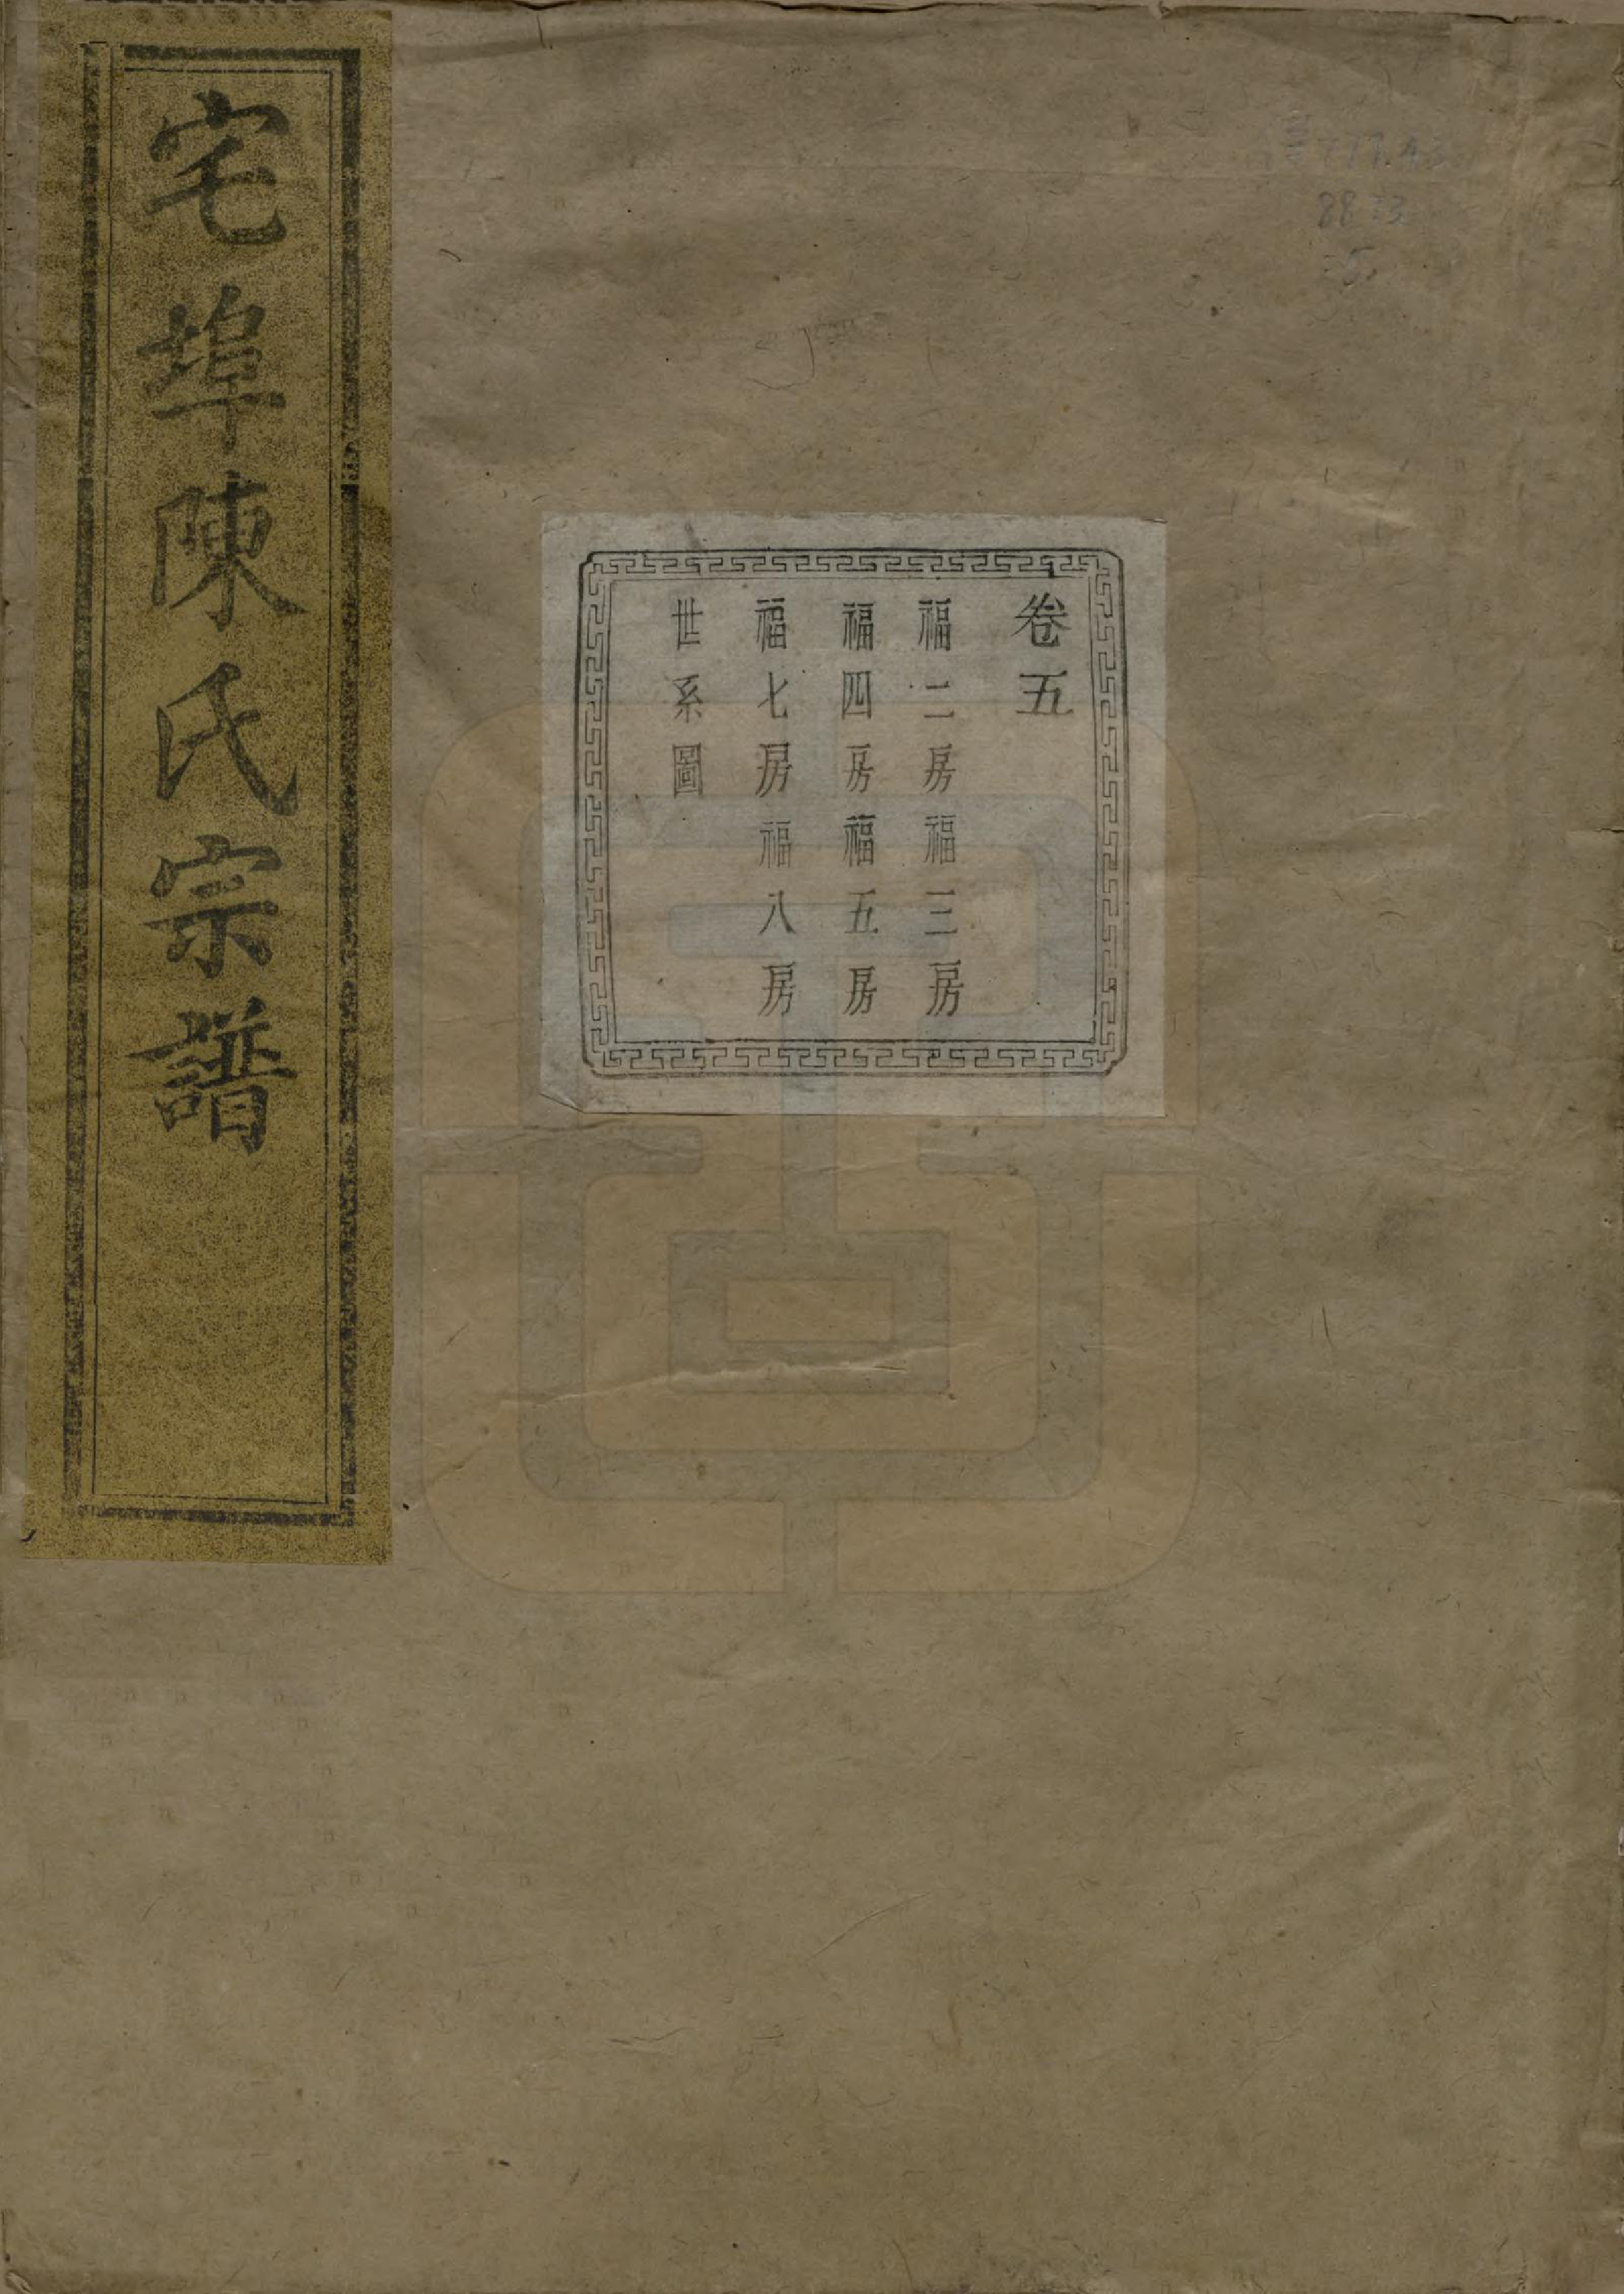 宅埠陳氏宗譜
卷五
福二房福三房
福四房福五房
福七房福八房
世系圖
8833
5